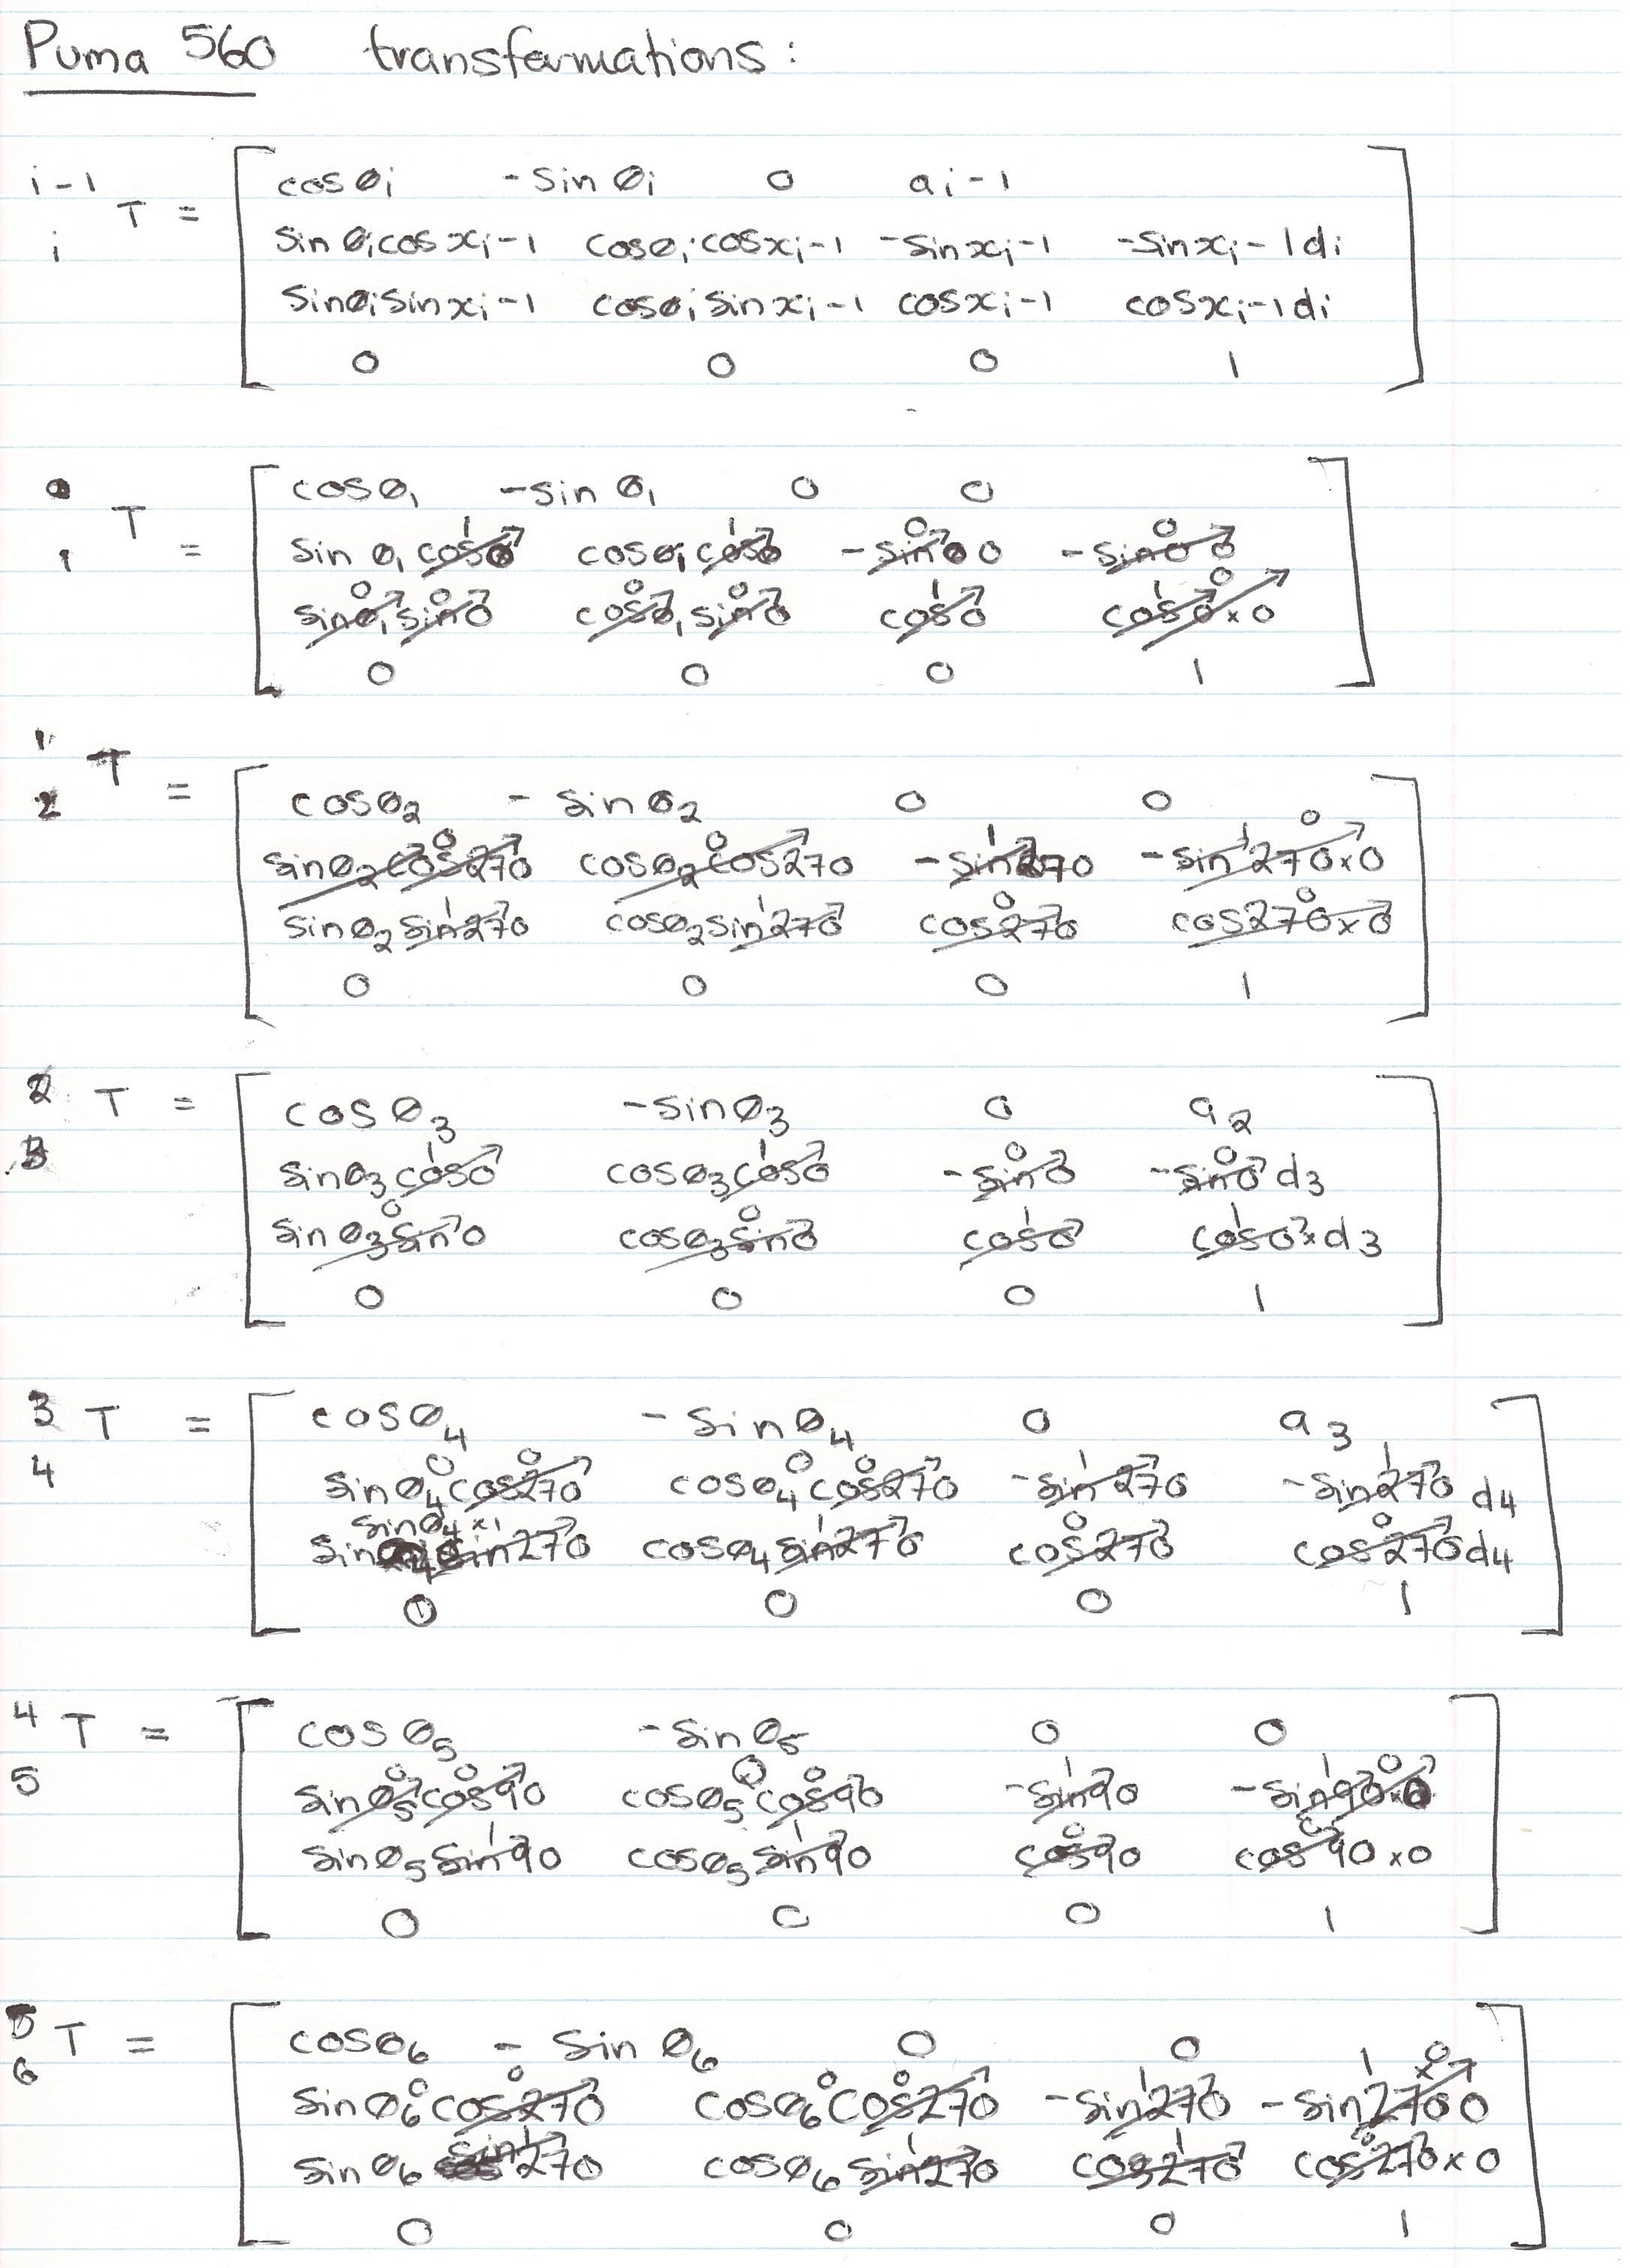 Puma 560 transformations:
i-1
i T = cosθi -sinθi 0 ai-1
sinθicosxi-1 cosθi·cosxi-1 -sinxi-1 -sinxi-1di
sinθisinxi-1 cosθisinxi-1 cosxi-1 cosxi-1di
0 0 0 1
0
1 T = cosθ1 -sinθ1 0 0
1 1 0 0
sinθ1cos0 cosθ1cos0 -sin0 0 -sin0 0
0 0 0 0 1 1 0
sinθ1sin0 cosθ1sin0 cos0 cos0×0
0 0 0 1
1
2 T = cosθ2 -sinθ2 0 0
0 0 1 1 0
sinθ2cos270 cosθ2cos270 -sin270 -sin270×0
1 1 0 0
sinθ2sin270 cosθ2sin270 cos270 cos270×0
0 0 0 1
2
3 T = cosθ3 -sinθ3 0 a2
1 1 0 0
sinθ3cos0 cosθ3cos0 -sin0 -sin0 d3
0 0 1 1
sinθ3sin0 cosθ3sin0 cos0 cos0×d3
0 0 0 1
3
4 T = cosθ4 -sinθ4 0 a3
0 0 0 0 1 1
sinθ4cos270 cosθ4cos270 -sin270 -sin270 d4
sinθ4×1 1 0 0
sin sin270 cosθ4sin270 cos270 cos270d4
0 0 0 1
4
5 T = cosθ5 -sinθ5 0 0
0 0 0 0 1 1 0
sinθ5cos90 cosθ5cos90 -sin90 -sin90×0
1 1 0
sinθ5sin90 cosθ5sin90 cos90 cos90×0
0 0 0 1
5
6 T = cosθ6 -sinθ6 0 0
0 0 0 0 1 1 ×0
sinθ6cos270 cosθ6cos270 -sin270 -sin270 0
1 1 1 0
sinθ6 sin270 cosθ6sin270 cos270 cos270×0
0 0 0 1